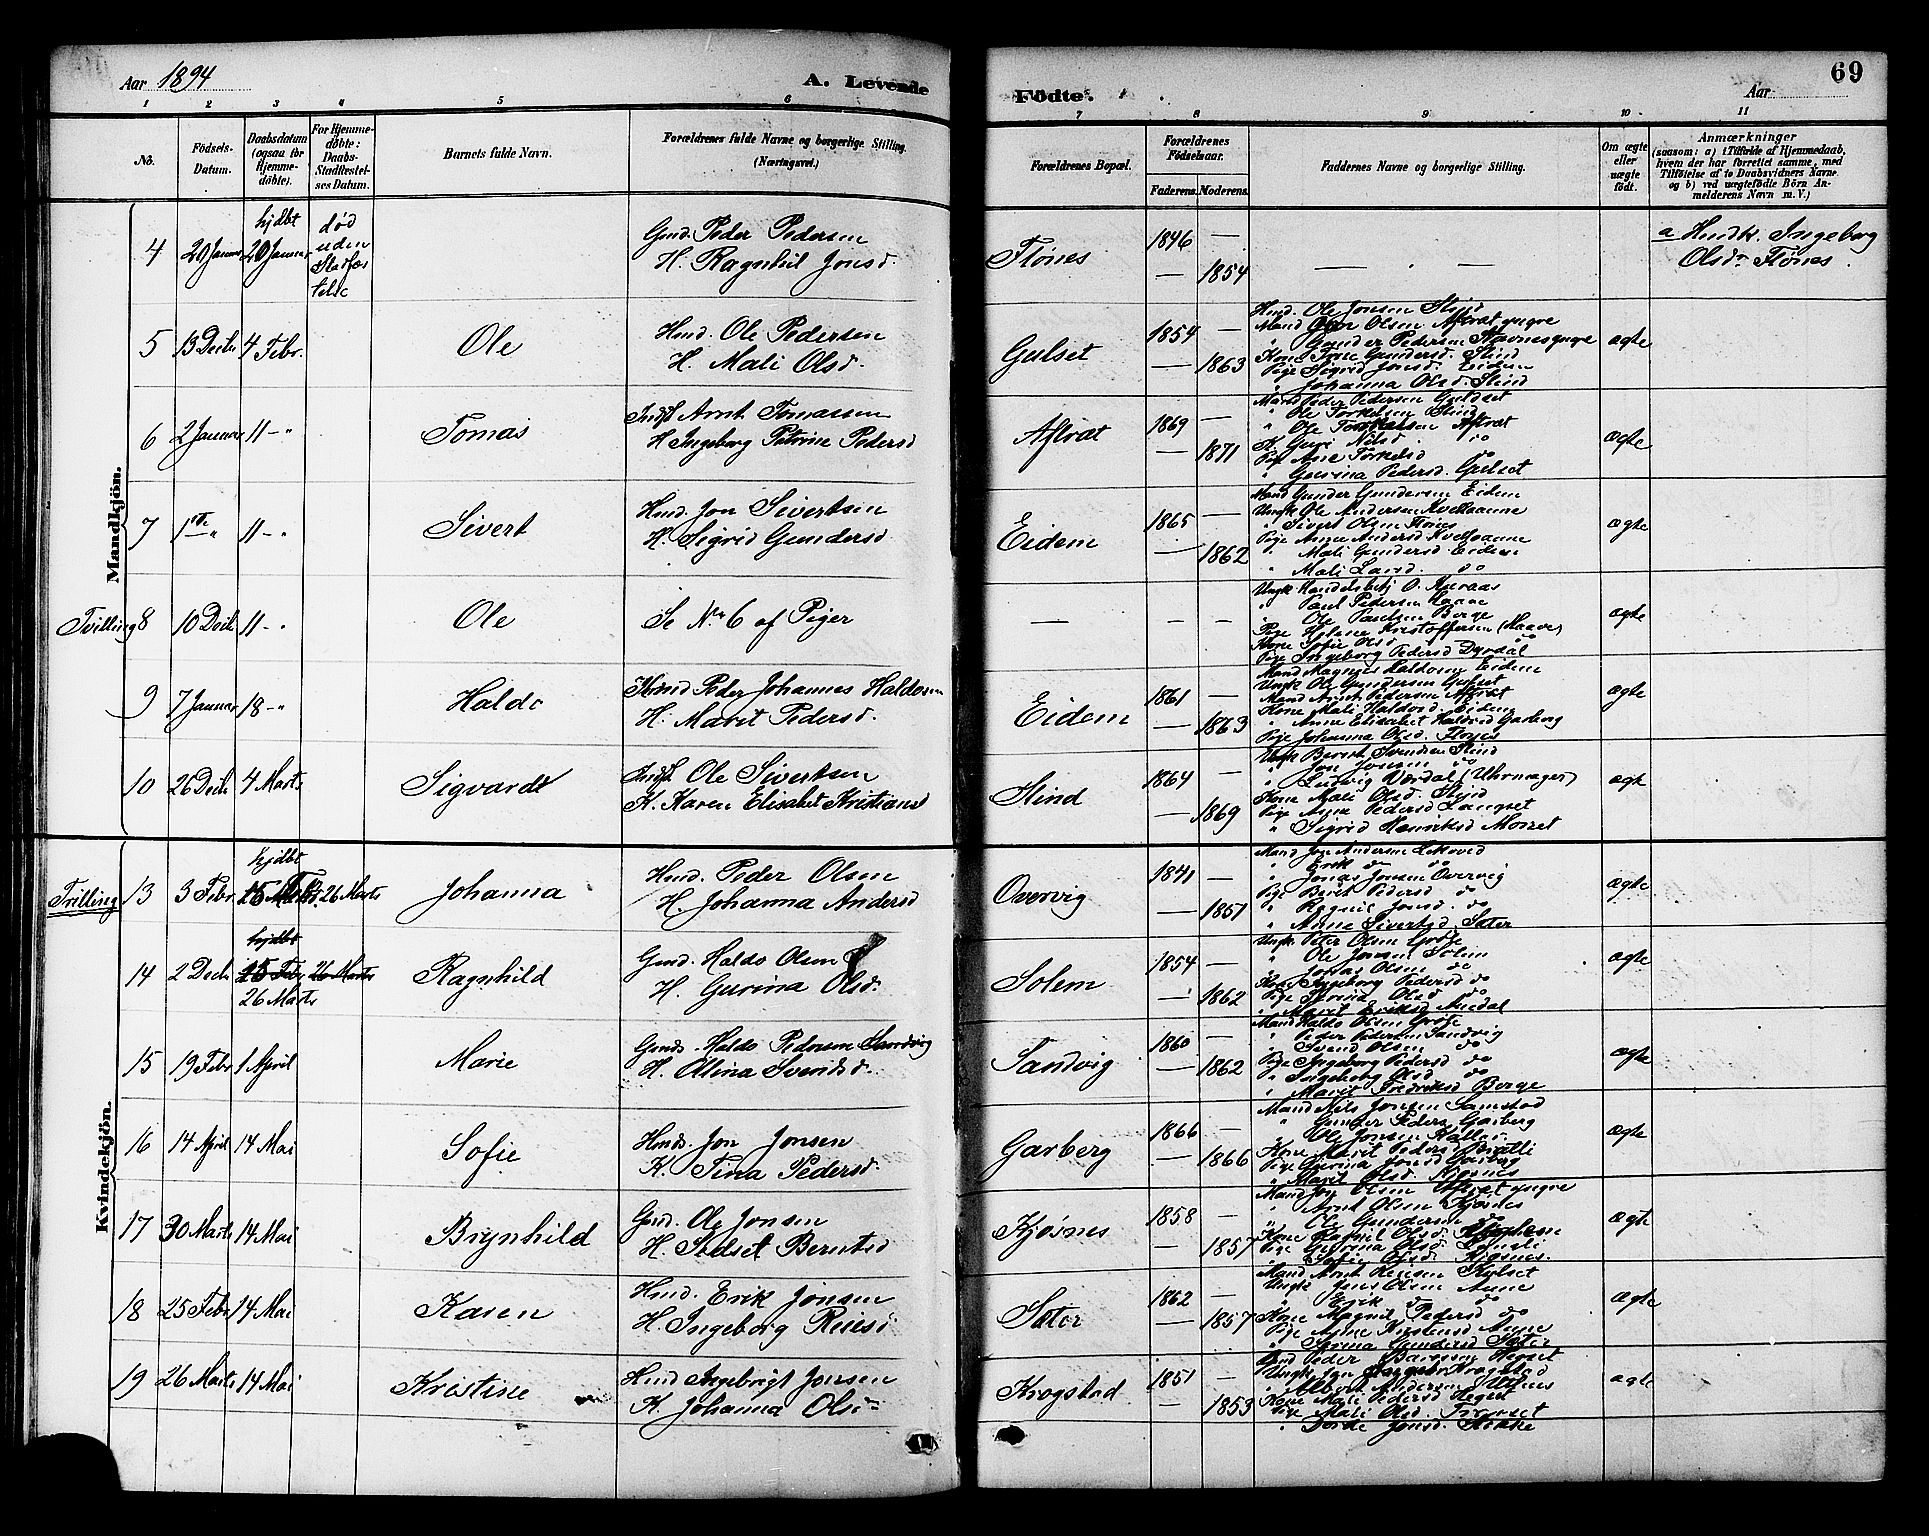 Aar 1894
A. Levende
Födte.
Aar
69
1 2 3 4 5 6 7 8 9 10 11
No.
Födsels-Datum.
Daabsdatum (ogsaa for Hjemme-döbte).
For Hjemme-döbte: Daabs-Stadfæstel-ses Datum.
Barnets fulde Navn.
Forældrenes fulde Navne og borgerlige Stilling. (Næringsvei.)
Forældrenes Bopæl.
Forældrenes Födselsaar.
Faderens. Moderens.
Faddernes Navne og borgerlige Stilling.
Om ægte eller uægte födt.
Anmærkninger
(saasom: a) i Tilfælde af Hjemmedaab, hvem der har forrettet samme, med Tilföielse af to Daabsvidners Navne og b) ved uægtefödte Börn An-melderens Navn m. V.)
Mandkjön.
4 20 Januar hjdbt 20 Januar død uden Stadfæstelse
Gmd. Peder Pedersen
H. Ragnhil Jonsd.
Flönes 1846 — — 1854
a Hmdk. Ingeborg
Olsdr. Flönes.
5 13 Decb 4 Febr. Ole
Hmd. Ole Pedersen
H. Mali Olsd.
Gulset 1854 — — 1863
Hmd. Ole Jonsen Slind
Mand Olsen Aftret yngre
" Gunder Pedersen Stavnes yngre
Kone Gundersd. Slind
Pige Sigrid Jonsd. Eidem
" Johanna Olsd. Slind
ægte
6 2 Januar 11 - " Tomas
Indst. Arnt Tomassen
H. Ingeborg Petrine Pedersd
Aftræt 1869 — — 1871
Mand Peder Pedersen Gulset
" Ole Torkelsen Slind
" Ole Aftræt
K. Guri Nilsd. do
Pige Ane Torkelsd do
" Gurina Pedersd. Gulset
ægte
7 1ste " 11 - " Sivert
Hmd. Jon Sivertsen
H. Sigrid Gundersd
Eidem 1865 — — 1862
Mand Gunder Gundersen Eidem
Ungk Ole Andersen
" Sivert Olsen Flönes
Pige Anne Andersd
" Mali Gundersd Eidem
" Mali Larsd. do
ægte
Tvilling 8 10 Decb 11 - " Ole
Se No 6 af Piger
— — —
Ungk Handelsbetj O. Aueraas
" Paul Pedersen
" Ole Paulsen Berge
Pige Helene Kristoffersen
Kone Sofie Olsd do
Pige Ingeborg Pedersd Dyrdal
ægte
9 7 Januar 18 - " Haldo
Hmd Peder Johannes Haldosen
H. Marit Pedersd.
Eidem 1861 — — 1863
Mand Magnus Haldosen Eidem
Ungk Ole Gundersen Gulset
Mand Arnt Pedersen Aftræt
Kone Mali Haldosd. Eidem
" Anne Elisabet Haldosd Garberg
Pige Johanna Olsd. Flönes
ægte
10 26 Decb 4 Marts Sigvardt
Indst. Ole Sivertsen
K. Karen Elisabet Kristiansd
Slind 1864 — — 1869
Ungk Bernt Svendsen Slind
" Jon Jonsen do
" Ludvig Værdal (Uhrmager)
Kone Mali Olsd. Slind
Pige Anne Pedersd Langset
" Sigrid Henriksd Moset
ægte
Kvindekjön.
Trilling 13 3 Febr. hjdbt 15 26 Marts Johanna
Hmd. Peder Olsen
H. Johanna Andersd
Overvig 1841 — — 1851
Mand Jon Andersen
" Erik do do
" Jonas Jonsen Overvig
Pige Berit Pedersd do
" Ragnil Jonsd. do
" Anne Sivertsd. Sæter
ægte
14 2 Decb hjdbt 15 Feb 26 Marts
26 Marts
Ragnhild
Gmd. Haldo Olsen
H. Gurina Olsd.
Solem 1854 — — 1862
Ungk. Peter Olsen
" Ole Jonsen Solem
" Jonas Olsen do
Kone Ingeborg Pedersd do
Pige Olsd do
" Marit Eriksd
ægte
15 19 Febr 1 April Marie
Gmd. Haldo Pedersen Sandvig
H. Elina Svendsd.
Sandvig 1860 — — 1862
Mand Haldo Olsen
" Peder Pedersen Sandvig
" Svend Olsen do
Pige Ingeborg Pedersd do
" Ingeborg Olsd do
" Marit Fredriksd Berge
ægte
16 14 April 14 Mai Sofie
Hmd. Jon Jonsen
K. Tina Pedersd.
Garberg 1866 — — 1866
Mand Nils Jonsen Samstad
" Gunder Peders. Garberg
" Ole Jonsen
Kone Marit Pedersd
Pige Gurina Jonsd Garberg
" Marit Olsd.
ægte
17 30 Marts 14 Mai Brynhild
Gmd. Ole Jonsen
H. Sedset Berntsd
Kjösnes 1858 — — 1857
Mand Jon Olsen Aftræt yngre
" Arnt Olsen Kjösnes
" Ole Gundersen do
Kone Ragnil Olsd.
Pige Gurina Olsd
" Sofie Olsd. Kjösnes.
ægte
18 25 Febr 14 Mai Karen
Hmd. Erik Jonsen
H. Ingeborg Reiersd
Sæter 1862 — — 1857
Mand Arnt Kulset
Ungk Jens Olsen Aune
" Erik do do
Kone Magnil Pedersd do
Pige Anne Kirstensd Aune
" Gundersd Sæter
ægte
19 26 Marts 14 Mai Kristine
Hmd Ingebrigt Jonsen
K. Johanna Olsd
Krogstad 1851 — — 1853
Peder
Ungk. Jon Krogstad
" Albert Andersen
Kone Mali Pedersd
Pige Mali Olsd.
" Jonsd.
ægte